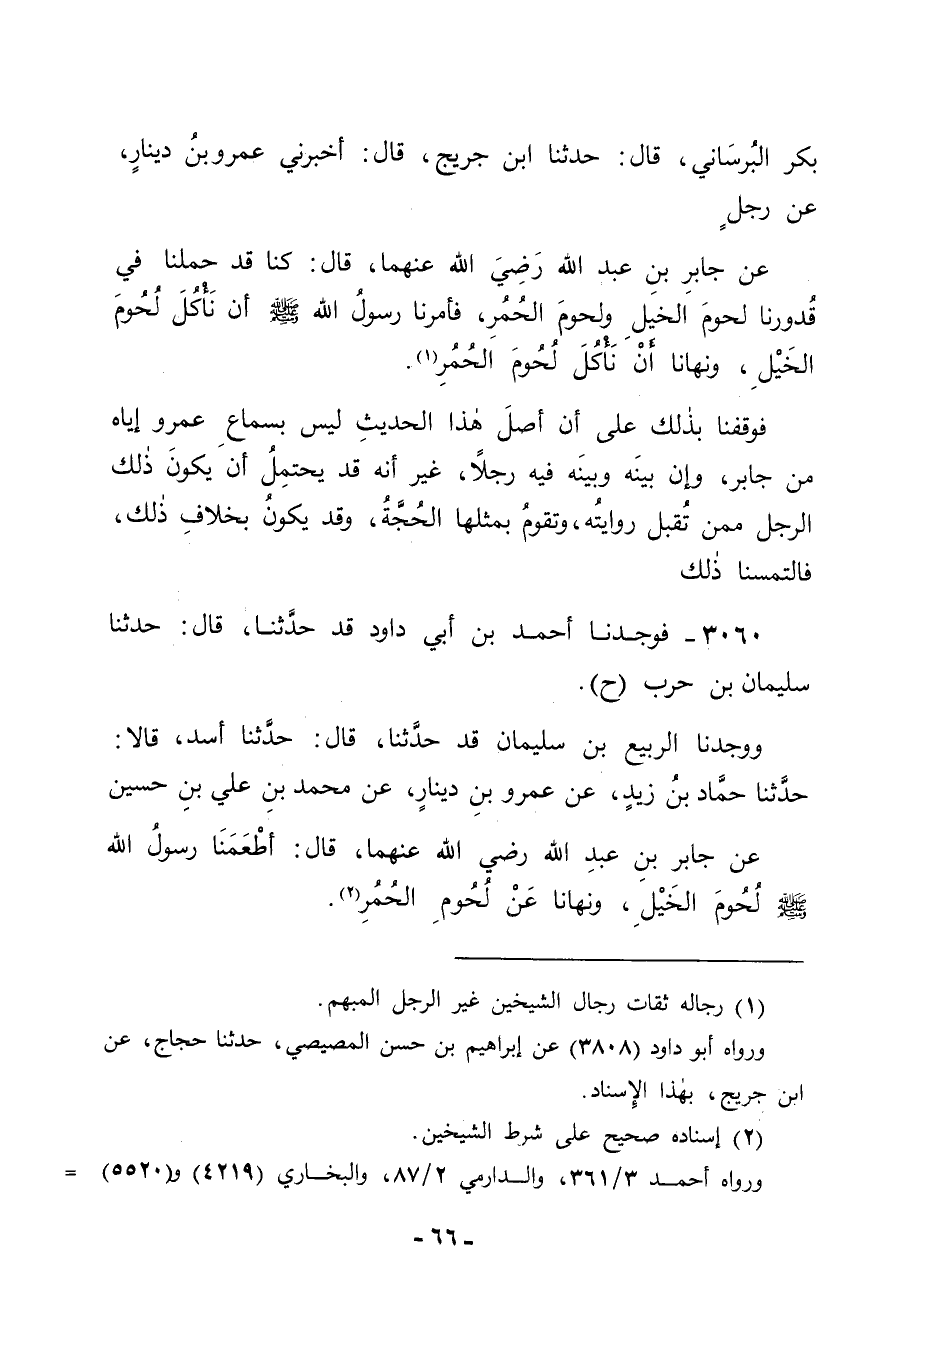 بكر البُرسَاني، قال: حدثنا ابن جريج، قال: أخبرني عمرو بنُ دينارٍ،
عن رجلٍ
عن جابرِ بنِ عبد الله رَضِيَ الله عنهما، قال: كنا قد حملنا في
قُدورنا لحومَ الخيلِ ولحومَ الحُمُرِ، فأمرنا رسولُ الله ﷺ أن نَأْكُلَ لُحُومَ
الخَيْلِ، ونهانا أَنْ نَأْكُلَ لُحُومَ الحُمُرِ(١).
فوقفنا بذٰلك على أن أصلَ هٰذا الحديثِ ليس بسماعِ عمرو إياه
من جابر، وإن بينَه وبينَه فيه رجلاً، غير أنه قد يحتمِلُ أن يكونَ ذٰلك
الرجل ممن تُقبل روايتُه، وتقومُ بمثلها الحُجَّةُ، وقد يكونُ بخلافِ ذٰلك،
فالتمسنا ذٰلك
٣٠٦٠ـ فوجدنا أحمد بن أبي داود قد حدَّثنا، قال: حدثنا
سليمان بن حرب (ح).
ووجدنا الربيع بن سليمان قد حدَّثنا، قال: حدَّثنا أسد، قالا:
حدَّثنا حمَّاد بنُ زيدٍ، عن عمرو بنِ دينارٍ، عن محمد بنِ علي بنِ حسين
عن جابر بنِ عبدِ الله رضي الله عنهما، قال: أطْعَمَنَا رسولُ الله
ﷺ لُحُومَ الخَيْلِ، ونهانا عَنْ لُحُومِ الحُمُرِ(٢).
(١) رجاله ثقات رجال الشيخين غير الرجل المبهم.
ورواه أبو داود (٣٨٠٨) عن إبراهيم بن حسن المصيصي، حدثنا حجاج، عن
ابن جريج، بهٰذا الإسناد.
(٢) إسناده صحيح على شرط الشيخين.
ورواه أحمد ٣٦١/٣، والدارمي ٨٧/٢، والبخاري (٤٢١٩) و(٥٥٢٠) =
ـ ٦٦ ـ